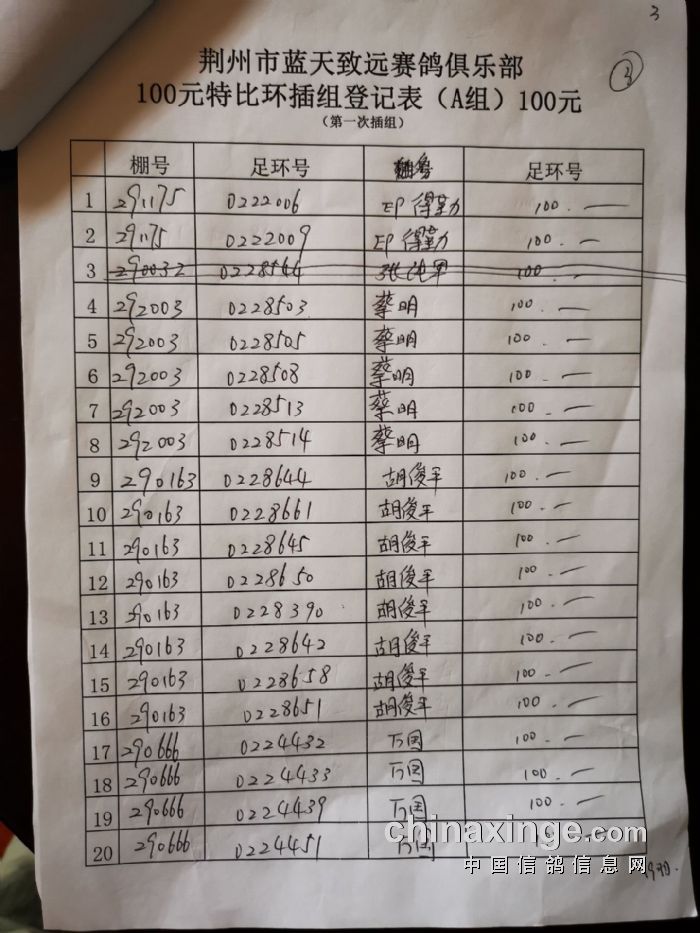 3
荆州市蓝天致远赛鸽俱乐部
③
100元特比环插组登记表（A组）100元
（第一次插组）
棚号 足环号 足环号
1 291175 0222006 得勤 100.—
2 291175 0222009 得勤 100.—
3 290032 0228544 100.—
4 292003 0228503 蔡明 100.—
5 292003 0228505 蔡明 100.—
6 292003 0228508 蔡明 100.—
7 292003 0228513 蔡明 100.—
8 292003 0228514 蔡明 100.—
9 290163 0228644 胡俊平 100.—
10 290163 0228661 胡俊平 100.—
11 290163 0228645 胡俊平 100.—
12 290163 0228650 胡俊平 100.—
13 290163 0228390 胡俊平 100.—
14 290163 0228642 胡俊平 100.—
15 290163 0228658 胡俊平 100.—
16 290163 0228651 胡俊平 100.—
17 290666 0224432 万国 100.—
18 290666 0224433 万国 100.—
19 290666 0224439 万国 100.—
20 290666 0224451 万国
chinaxinge.com
中国信鸽信息网